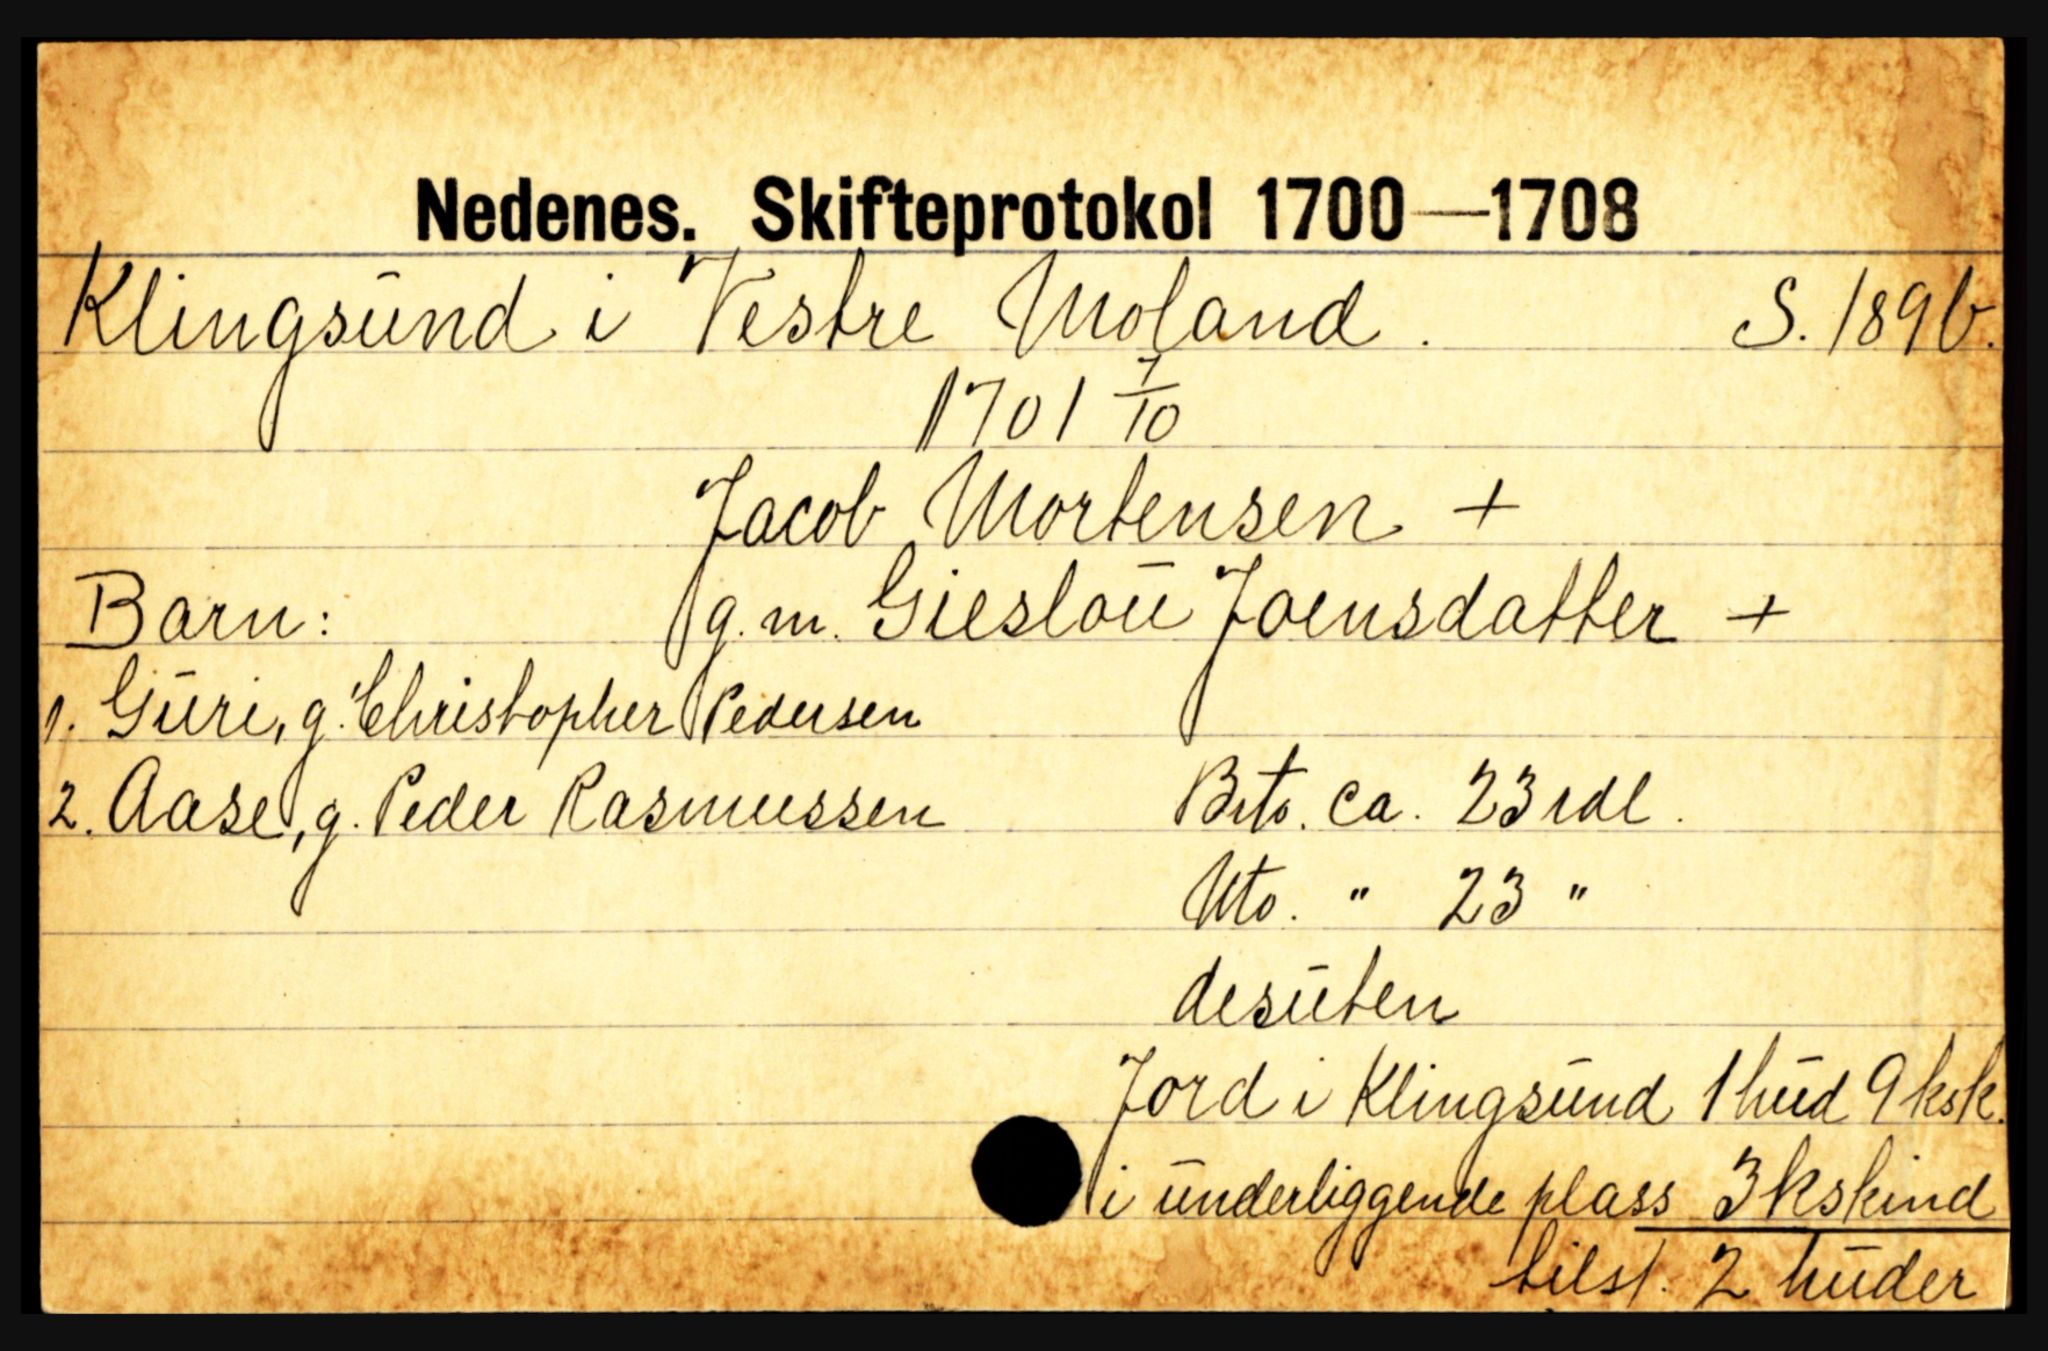 Nedenes. Skifteprotokol 1700—1708
Klingsund i Vestre Moland. S. 189b.
1701 7/10
Jacob Mortensen +
Barn: g. m. Gieslou Joensdatter +
1. Guri, g. Christopher Pedersen
2. Aase, g. Peder Rasmussen Bto. ca. 23 rdl.
Nto. " 23 "
desuten
Jord i Klingsund 1 hud 9 ksk.
i underliggende plass 3 kskind
tils. 2 huder